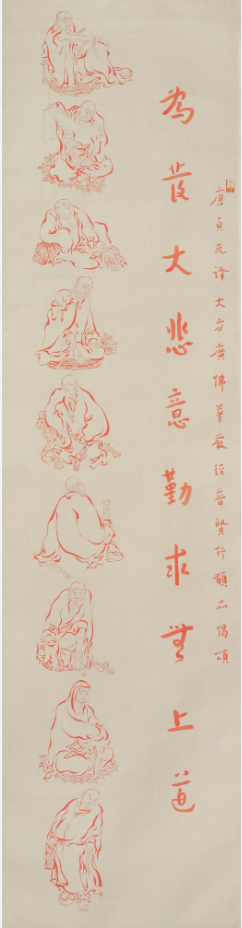 唐貞元譯大方廣佛華嚴經普賢行願品偈頌
為發大悲意勤求無上道